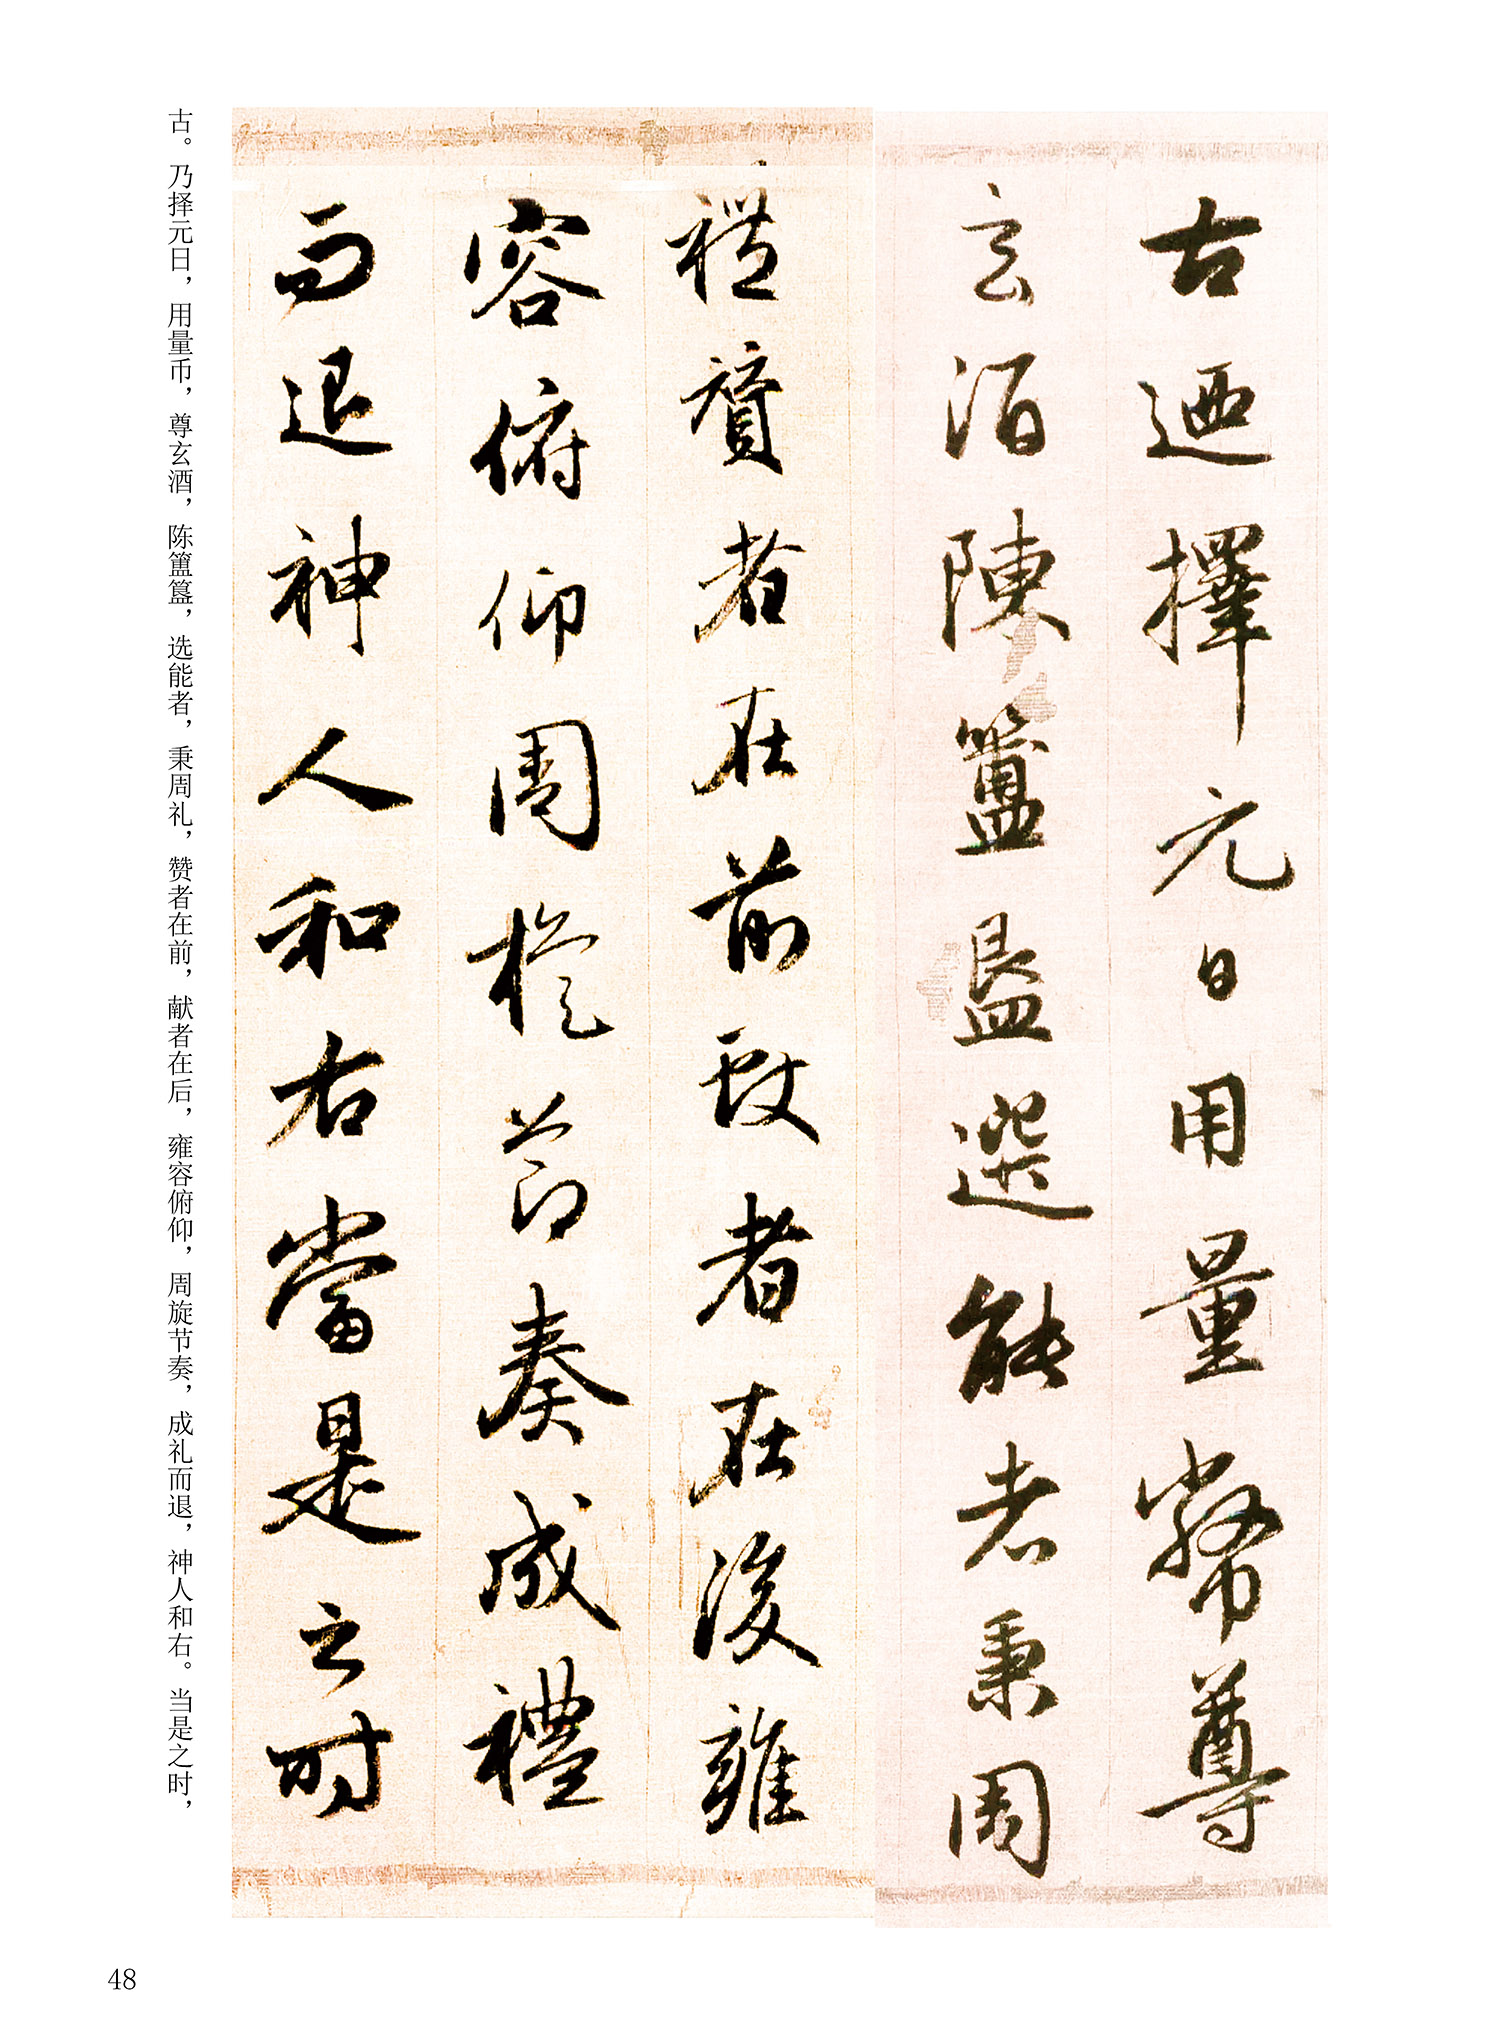 古迺擇元日用量幣尊
玄酒陳簠簋選能者秉周
禮贊者在前獻者在後雍
容俯仰周旋節奏成禮
而退神人和右當是之時
古。乃择元日，用量币，尊玄酒，陈簠簋，选能者，秉周礼，赞者在前，献者在后，雍容俯仰，周旋节奏，成礼而退，神人和右。当是之时，
48